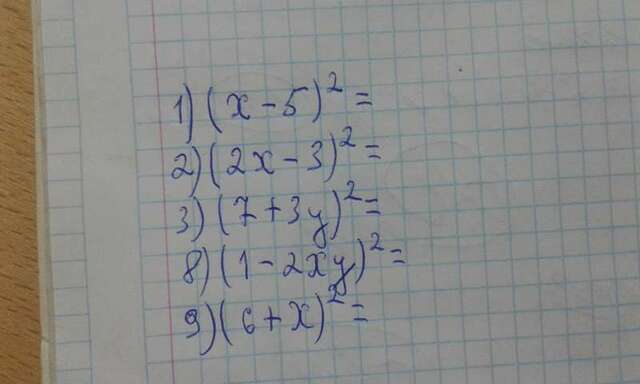 1) (x - 5)² =
2) (2x - 3)² =
3) (7 + 3y)² =
8) (1 - 2xy)² =
9) (6 + x)² =